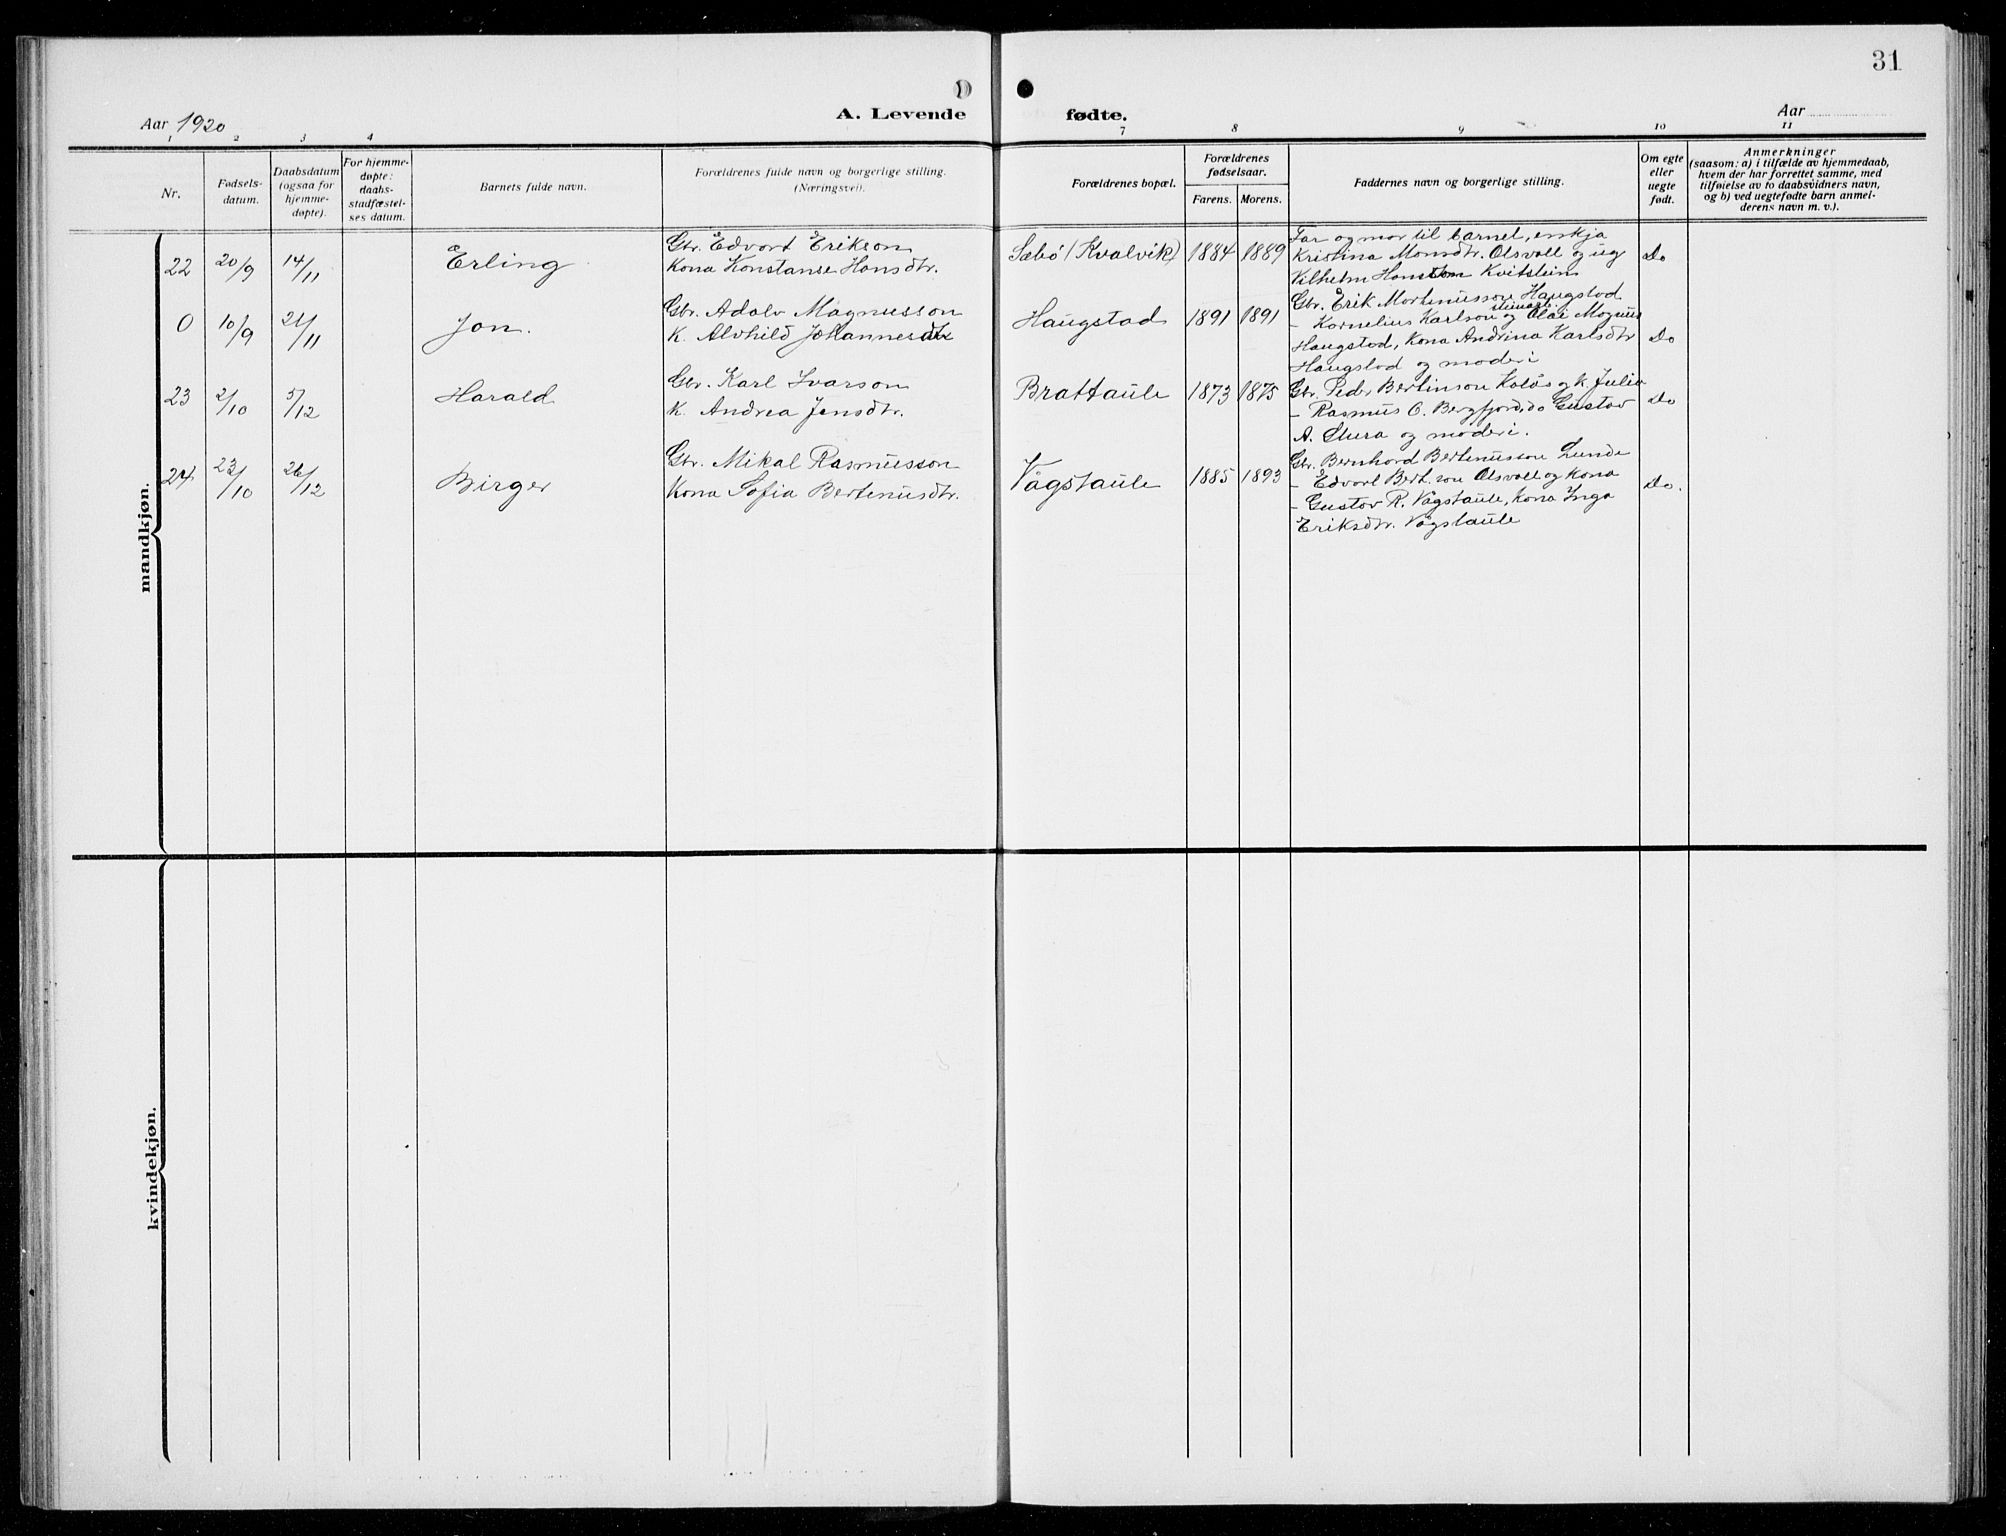 31
Aar 1920
A. Levende fødte.
Aar
1 2 3 4 7 8 9 10 11
Nr.
Fødsels-
datum.
Daabsdatum
(ogsaa for
hjemme-
døpte).
For hjemme-
døpte:
daabs-
stadfæstel-
ses datum.
Barnets fulde navn.
Forældrenes fulde navn og borgerlige stilling.
(Næringsvei).
Forældrenes bopæl.
Forældrenes
fødselsaar.
Farens. Morens.
Faddernes navn og borgerlige stilling.
Om egte
eller
uegte
født.
Anmerkninger
(saasom: a) i tilfælde av hjemmedaab,
hvem der har forrettet samme, med
tilføielse av to daabsvidners navn,
og b) ved uegtefødte barn anmel-
derens navn m. v.).
mandkjøn.
22 20/9 14/11 Erling
Gbr. Edvart Erikson
Kona Konstanse Hansdtr.
Sæbø (Kvalvik) 1884 1889
Far og mor til barnet, enkja
Kristina Monsdtr. Olsvoll og ug
Vilhelm Hansson Kvitstein
Do
0 10/9 21/11 Jon.
Gbr. Adolv Magnusson
K. Alvhild Johannesdtr
Haugstad 1891 1891
Gbr. Erik Mortenusson Haugstad
- Kornelius Karlson og Olai Magnus
Haugstad, Kona Andrina Karlsdtr
Haugstad og moderi
Do
23 2/10 5/12 Harald
Gbr. Karl Ivarson
K. Andrea Jensdtr.
Brattaule 1873 1875
Gbr. Peder Bertinson Kolås og k. Julia
- Rasmus O. Bergfjord, do Gustav
A. Stura og moderi.
Do
24 23/10 26/12 Birger
Gbr. Mikal Rasmusson
Kona Sofia Bertenusdtr.
Vågstaule 1885 1893
Gbr. Bernhard Bertenusson Lunde
- Edvart Bert.son Olsvoll og kona
- Gustav R. Vågstaule, kona Inga
Eriksdtr. Vågstaule
Do.
kvindekjøn.